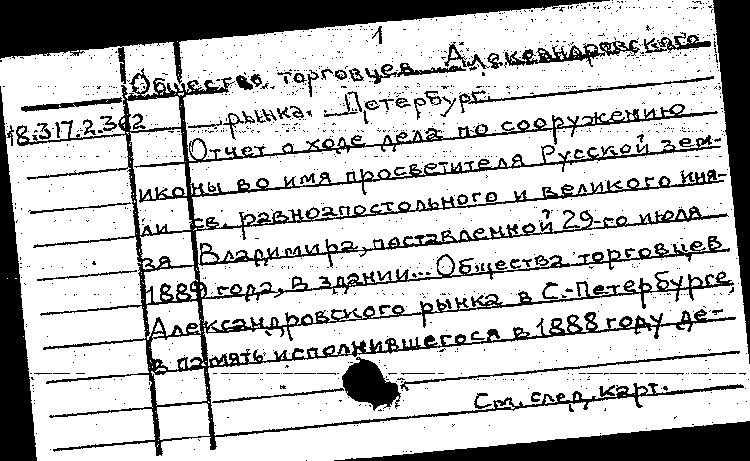 1
Общество торговцев Александровского
рынка. Петербург.
18.317.2.362
Отчет о ходе дела по сооружению
иконы во имя просветителя Русской зем-
ли св. равноапостольного и великого кня-
зя Владимира, поставленной 29-го июля
1889 года, в здании... Общества торговцев
Александровского рынка в С.-Петербурге,
в память исполнившегося в 1888 году де-
См. след. карт.